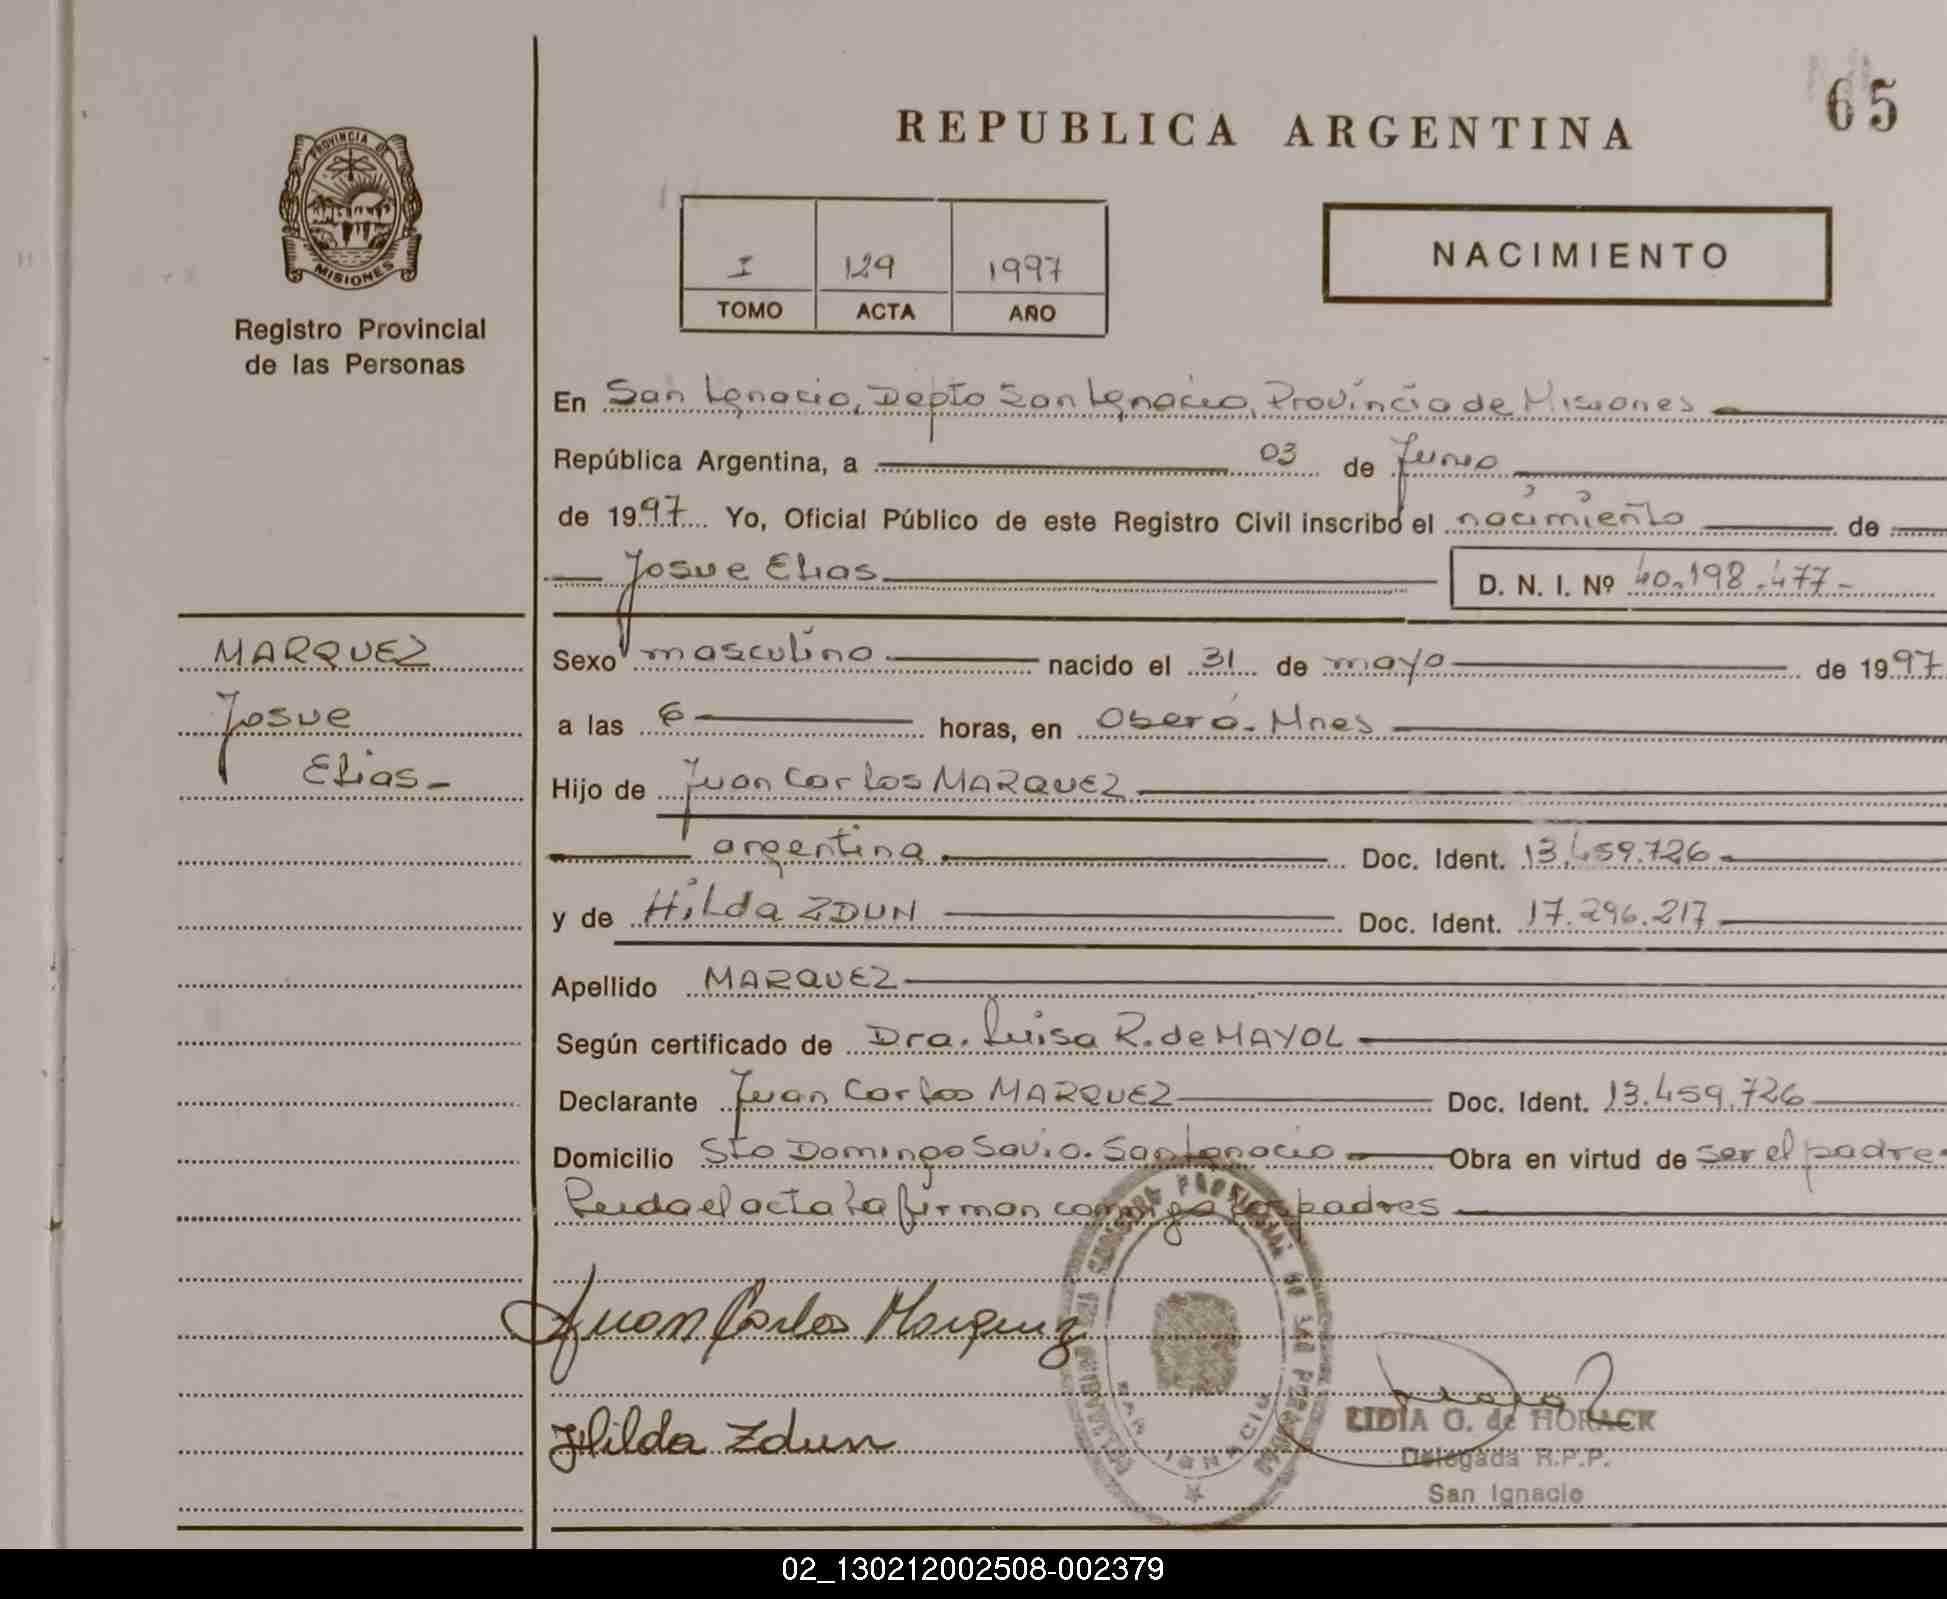 REPUBLICA ARGENTINA
65
PROVINCIA DE
MISIONES
Registro Provincial
de las Personas
I 129 1997
TOMO ACTA AÑO
NACIMIENTO
En San Ignacio, Depto San Ignacio, Provincia de Misiones
República Argentina, a 03 de Junio
de 1997 Yo, Oficial Público de este Registro Civil inscribo el nacimiento de
Josue Elias D. N. I. Nº 40.198.477-
MARQUEZ
Josue
Elias-
Sexo masculino nacido el 31 de mayo de 1997
a las 6 horas, en Oberá. Mnes
Hijo de Juan Carlos MARQUEZ
argentina Doc. Ident. 13.459.726
y de Hilda ZDUN Doc. Ident. 17.296.217
Apellido MARQUEZ
Según certificado de Dra. Luisa R. de MAYOL
Declarante Juan Carlos MARQUEZ Doc. Ident. 13.459.726
Domicilio Sto Domingo Savio. San Ignacio Obra en virtud de ser el padre
Leida el acta la firman conmigo los padres
Juan Carlos Marquez
Hilda Zdun
SAN IGNACIO
LIDIA G. de HORACK
Delegada R.P.P.
San Ignacio
02_130212002508-002379